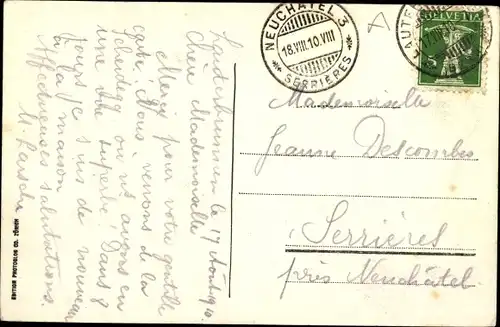 Lauterbrunnen le 17 août 1910.
Chère Mademoiselle
Merci pour votre gentille
carte. Nous venons de la
Scheidegg où ns avons eu
une vue superbe! Dans 8
jours je suis de nouveau
à la maison
Affectueuses salutations.
EDITION PHOTOGLOB CO. ZÜRICH
NEUCHATEL 3
18.VIII.10.VIII
SERRIÈRES
HELVETIA
5
Mademoiselle
Jeanne Descombes
Serrières
près Neuchâtel